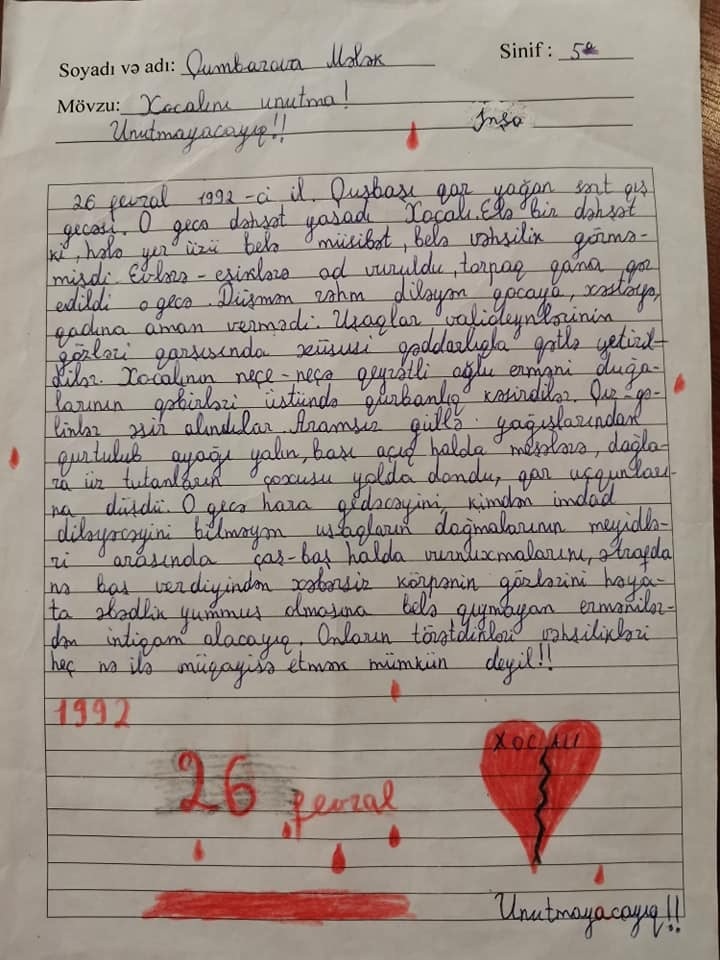 Soyadı və adı: Qumbarova Mələk Sinif : 5ᵃ
Mövzu: Xocalını unutma!
Unutmayacayıq!! İnşa
26 fevral 1992 -ci il. Quşbaşı qar yağan sərt qış
gecəsi. O gecə dəhşət yaşadı Xocalı. Elə bir dəhşət
ki, hələ yer üzü belə müsibət, belə vəhşilik görmə-
mişdi. Evlərə - eşiklərə od vuruldu, torpaq qana qər
edildi o gecə. Düşmən rəhm diləyən qocaya, xəstəyə,
qadına aman vermədi. Uşaqlar valideynlərinin
gözləri qarşısında xüsusi qəddarlıqla qətlə yetiril-
dilər. Xocalının neçə-neçə qeyrətli oğlu erməni duğa-
larının qəbirləri üstündə qurbanlıq kəsirdilər. Qız-gə-
linlər əsir alındılar. Aramsız güllə yağışlarından
qurtulub ayağı yalın, başı açıq halda meşələrə, dağla-
ra üz tutanların çoxusu yolda dondu, qar uçqunları-
na düşdü. O gecə hara gedəcəyini, kimdən imdad
diləyəcəyini bilməyən uşaqların doğmalarının meyidlə-
ri arasında çaş-baş halda vurnuxmalarını, ətrafda
nə baş verdiyindən xəbərsiz körpənin gözlərini həya-
ta əbədlik yummuş olmasına belə qıymayan ermənilər-
dən intiqam alacayıq. Onların törətdikləri vəhşilikləri
heç nə ilə müqayisə etmək mümkün deyil!!
1992
XOCALI
26 fevral
Unutmayacayıq!!